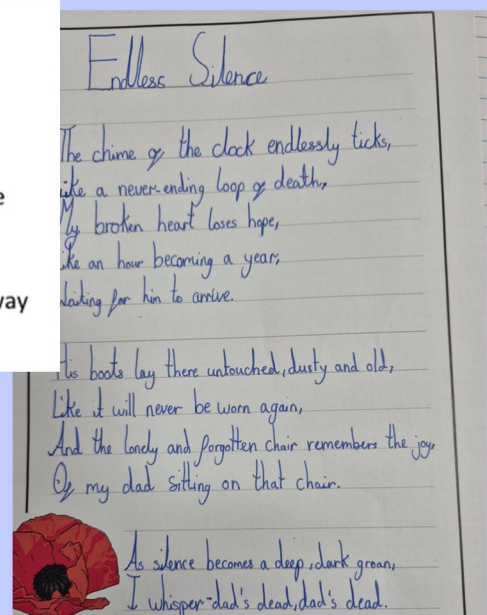 Endless Silence
The chime of the clock endlessly ticks,
Like a never-ending loop of death,
My broken heart loses hope,
Like an hour becoming a year,
Waiting for him to arrive.
His boots lay there untouched, dusty and old,
Like it will never be worn again,
And the lonely and forgotten chair remembers the joy,
Of my dad sitting on that chair.
As silence becomes a deep, dark groan,
I whisper-dad's dead, dad's dead.